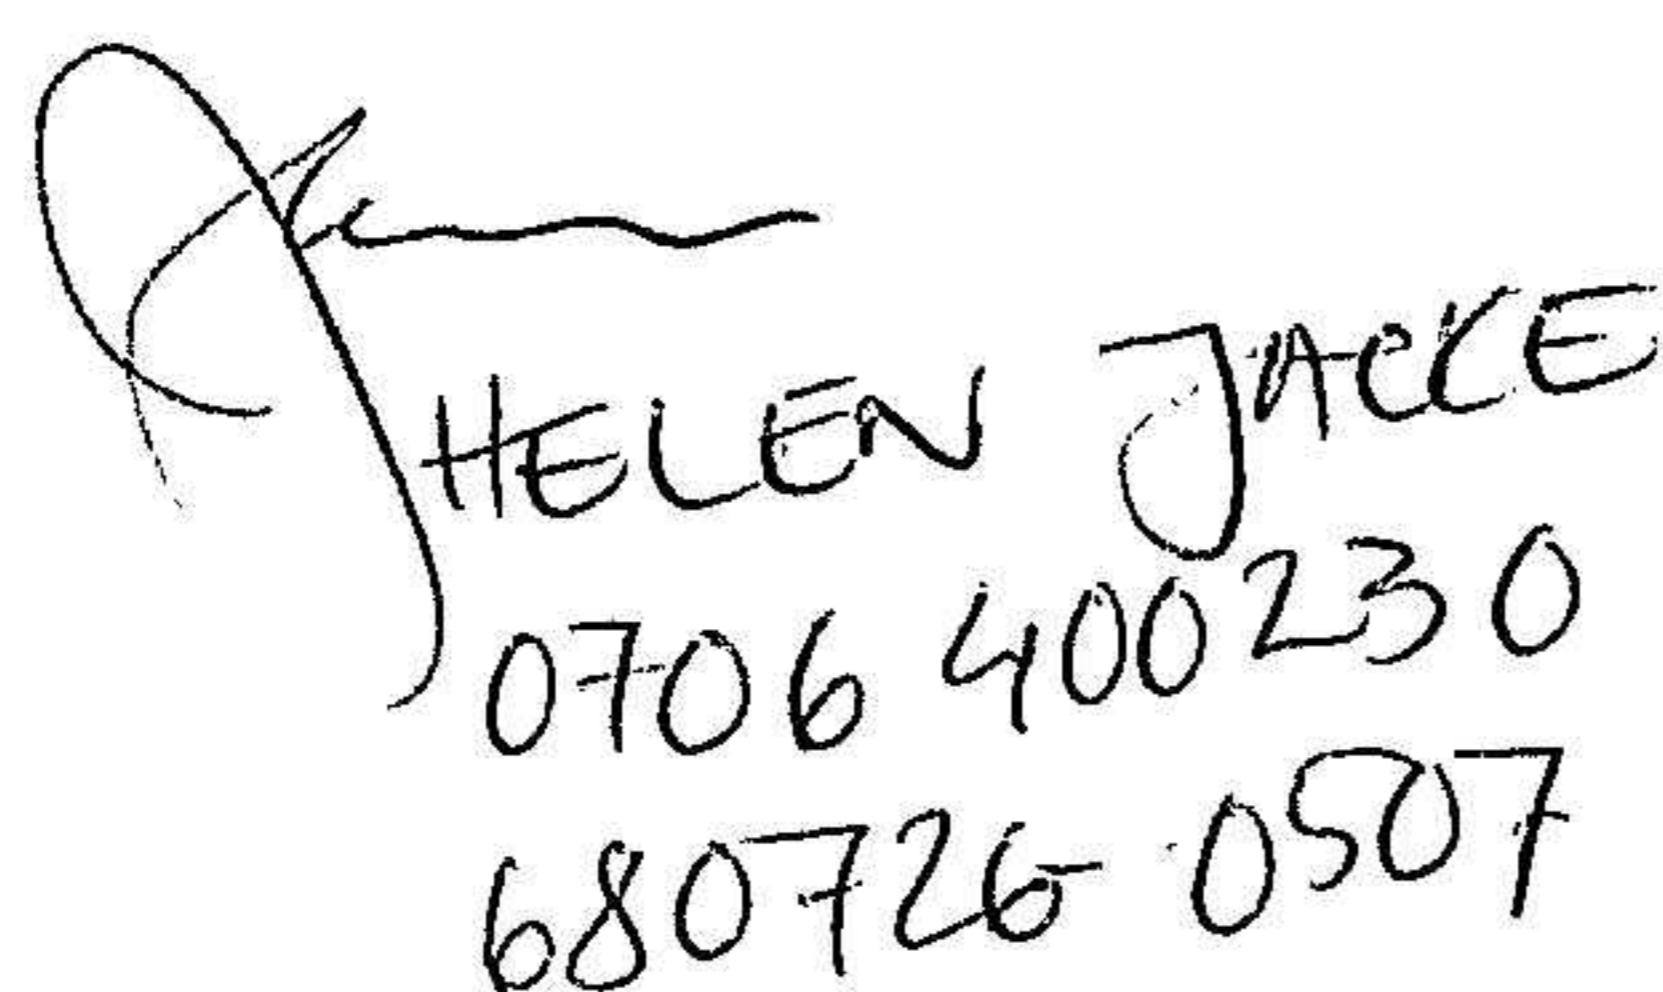 HELEN JACKE
0706 400230
680726-0507